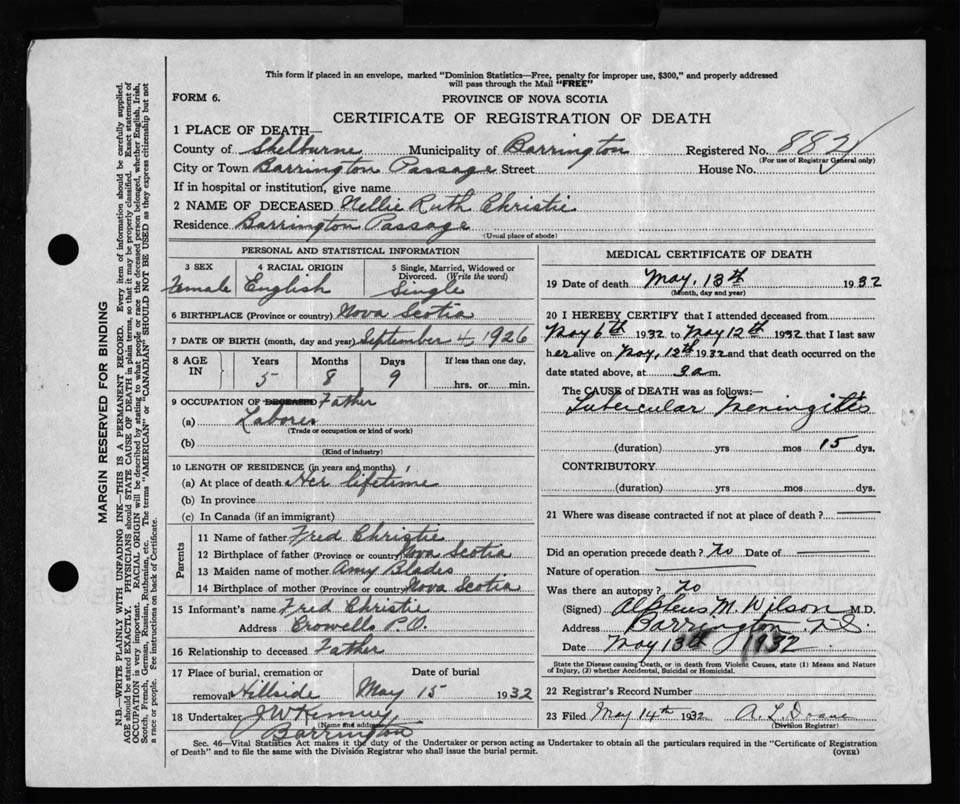 This form if placed in an envelope, marked "Dominion Statistics—Free, penalty for improper use, $300," and properly addressed
will pass through the Mail "FREE"
FORM 6.
PROVINCE OF NOVA SCOTIA
CERTIFICATE OF REGISTRATION OF DEATH
1 PLACE OF DEATH—
County of Shelburne Municipality of Barrington Registered No. 882
(For use of Registrar General only)
City or Town Barrington Passage Street House No.
If in hospital or institution, give name
2 NAME OF DECEASED Nellie Ruth Christie
Residence Barrington Passage
(Usual place of abode)
PERSONAL AND STATISTICAL INFORMATION
3 SEX 4 RACIAL ORIGIN 5 Single, Married, Widowed or Divorced. (Write the word)
Female English Single
6 BIRTHPLACE (Province or country) Nova Scotia
7 DATE OF BIRTH (month, day and year) September 4, 1926
8 AGE IN Years Months Days If less than one day.
5 8 9 hrs. or min.
9 OCCUPATION OF DECEASED Father
(a) Laborer
(Trade or occupation or kind of work)
(b)
(Kind of industry)
10 LENGTH OF RESIDENCE (in years and months)
(a) At place of death Her lifetime
(b) In province
(c) In Canada (if an immigrant)
Parents
11 Name of father Fred Christie
12 Birthplace of father (Province or country) Nova Scotia
13 Maiden name of mother Amy Blades
14 Birthplace of mother (Province or country) Nova Scotia
15 Informant's name Fred Christie
Address Crowells P.O.
16 Relationship to deceased Father
17 Place of burial, cremation or Date of burial
removal Hillside May 15 1932
18 Undertaker J W Kenney
(Name and address)
Barrington
MEDICAL CERTIFICATE OF DEATH
19 Date of death May, 13th 1932
(Month, day and year)
20 I HEREBY CERTIFY that I attended deceased from
May 6th 1932 to May 12th 1932 that I last saw
her alive on May, 12th 1932 and that death occurred on the
date stated above, at 3 a m.
The CAUSE of DEATH was as follows:—
Tubercular Meningitis
(duration) yrs mos 15 dys.
CONTRIBUTORY
(duration) yrs mos dys.
21 Where was disease contracted if not at place of death?
Did an operation precede death? No Date of
Nature of operation
Was there an autopsy? No
(Signed) Alpheus M. Wilson M.D.
Address Barrington, N.S.
Date May 13th 1932.
State the Disease causing Death, or in death from Violent Causes, state (1) Means and Nature
of Injury, (2) whether Accidental, Suicidal or Homicidal.
22 Registrar's Record Number
23 Filed May 14th 1932 A. L. Doane
(Division Registrar)
Sec. 46—Vital Statistics Act makes it the duty of the Undertaker or person acting as Undertaker to obtain all the particulars required in the "Certificate of Registration
of Death" and to file the same with the Division Registrar who shall issue the burial permit.
(OVER)
MARGIN RESERVED FOR BINDING
N.B.—WRITE PLAINLY WITH UNFADING INK—THIS IS A PERMANENT RECORD. Every item of information should be carefully supplied.
AGE should be stated EXACTLY. PHYSICIANS should STATE CAUSE OF DEATH in plain terms, so that it may be properly classified. Exact statement of
OCCUPATION is very important. RACIAL ORIGIN will be described by stating to what people or race the deceased person belonged, whether English, Irish,
Scotch, French, German, Russian, Ruthenian, etc. The terms "AMERICAN" or "CANADIAN" SHOULD NOT BE USED as they express citizenship but not
a race or people. See instructions on back of Certificate.